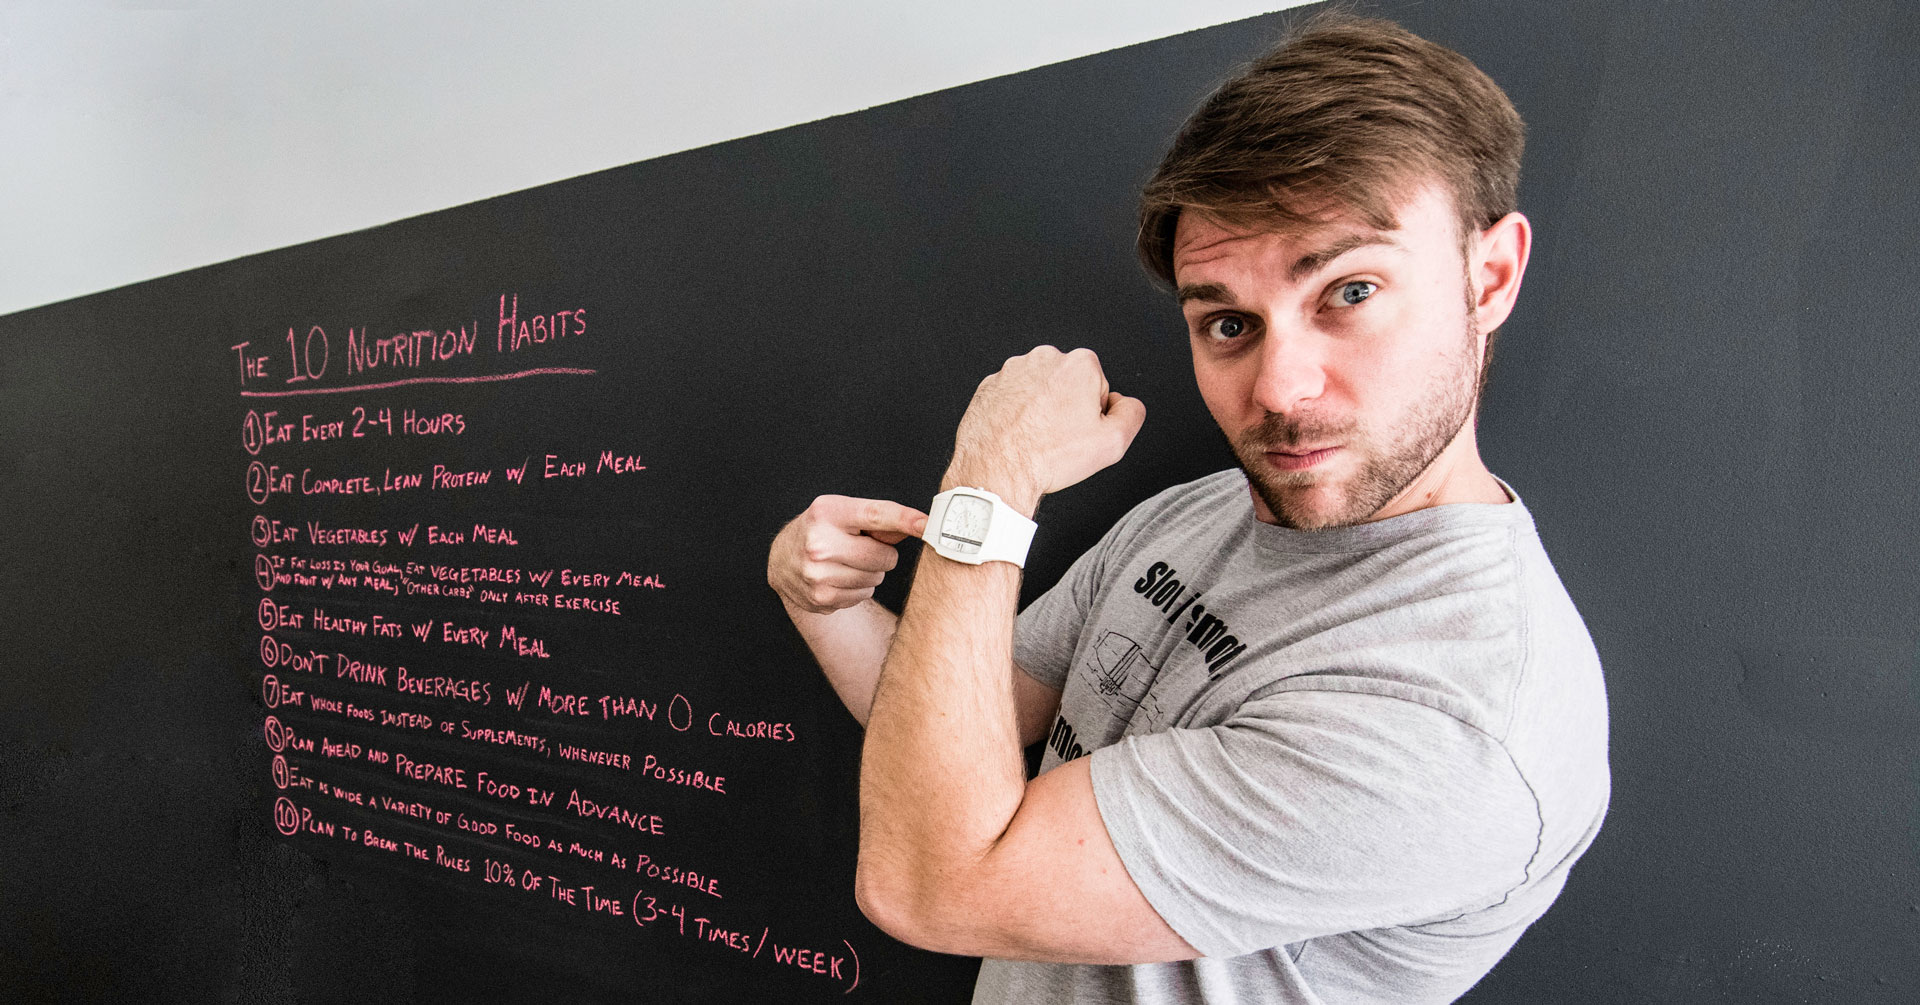 THE 10 NUTRITION HABITS
① EAT EVERY 2-4 HOURS
② EAT COMPLETE, LEAN PROTEIN W/ EACH MEAL
③ EAT VEGETABLES W/ EACH MEAL
④ IF FAT LOSS IS YOUR GOAL, EAT VEGETABLES W/ EVERY MEAL
AND FRUIT W/ ANY MEAL; "OTHER CARBS" ONLY AFTER EXERCISE
⑤ EAT HEALTHY FATS W/ EVERY MEAL
⑥ DON'T DRINK BEVERAGES W/ MORE THAN 0 CALORIES
⑦ EAT WHOLE FOODS INSTEAD OF SUPPLEMENTS, WHENEVER POSSIBLE
⑧ PLAN AHEAD AND PREPARE FOOD IN ADVANCE
⑨ EAT AS WIDE A VARIETY OF GOOD FOOD AS MUCH AS POSSIBLE
⑩ PLAN TO BREAK THE RULES 10% OF THE TIME (3-4 TIMES/WEEK)